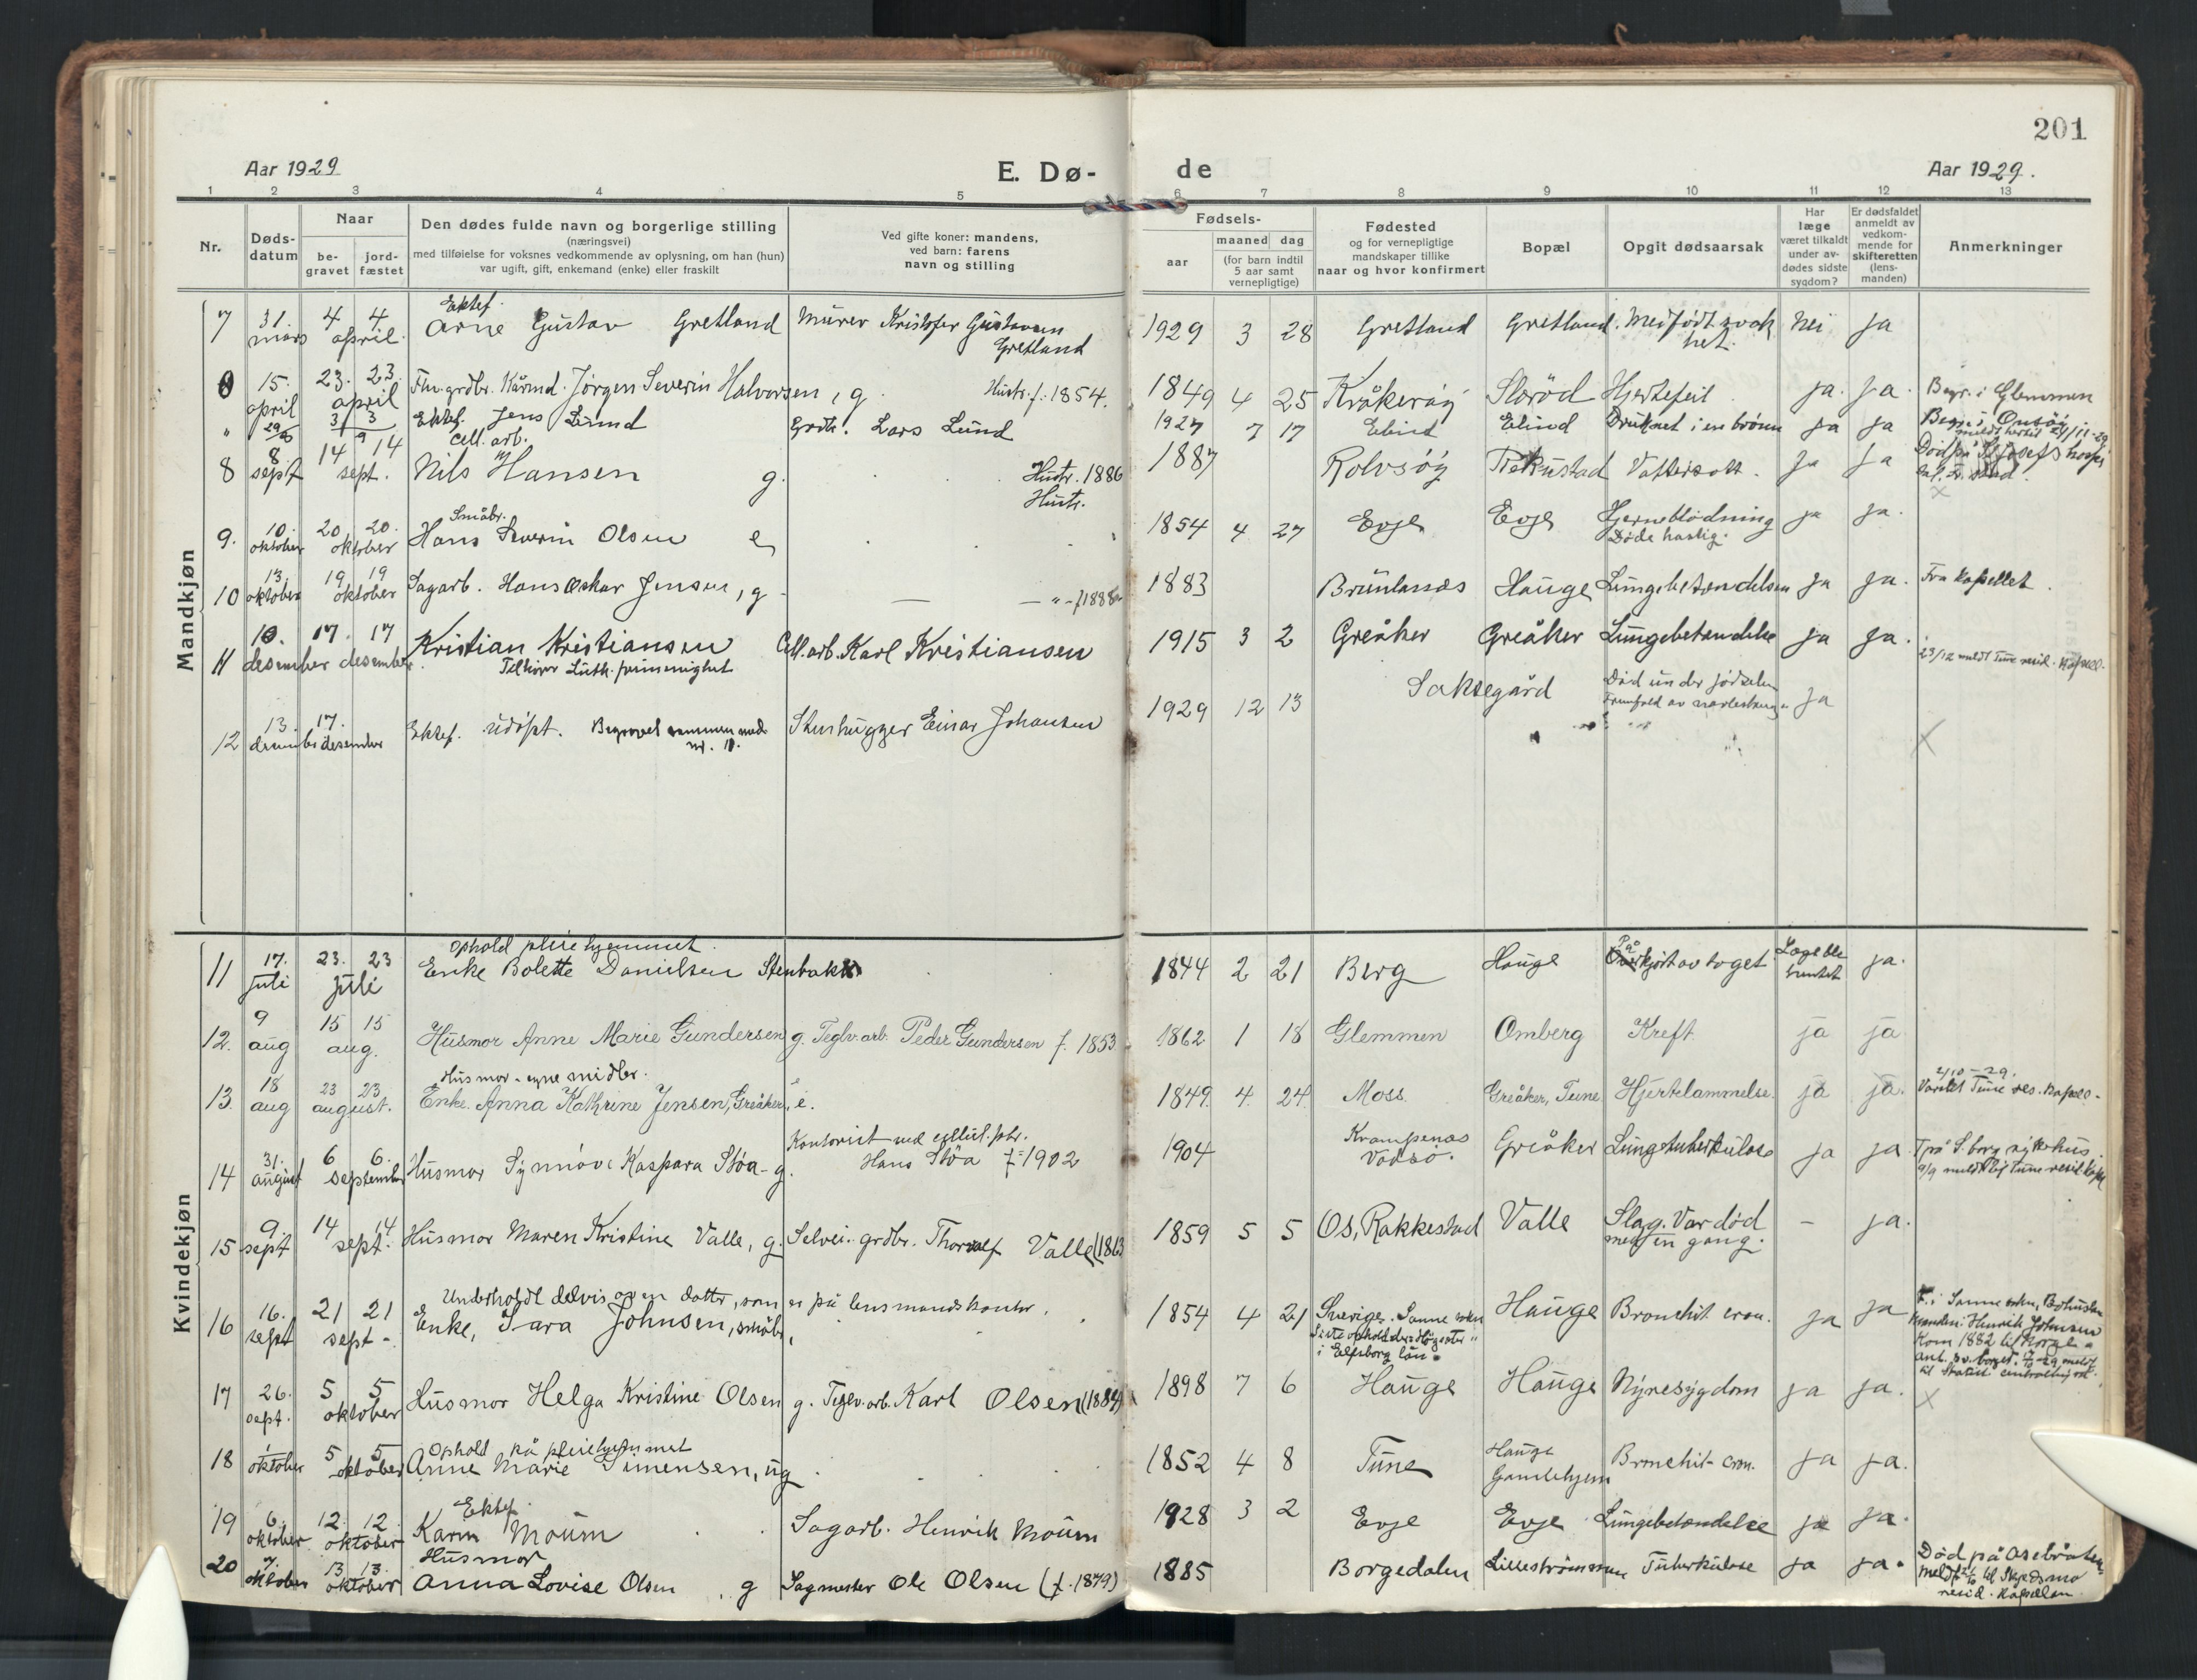 201
Aar 1929
E. Dø-
de
Aar 1929.
1 2 3 4 5 6 7 8 9 10 11 12 13
Nr.
Døds-
datum
Naar
be-
gravet
jord-
fæstet
Den dødes fulde navn og borgerlige stilling
(næringsvei)
med tilføielse for voksnes vedkommende av oplysning, om han (hun)
var ugift, gift, enkemand (enke) eller fraskilt
Ved gifte koner: mandens,
ved barn: farens
navn og stilling
Fødsels-
aar
maaned dag
(for barn indtil
5 aar samt
vernepligtige)
Fødested
og for vernepligtige
mandskaper tillike
naar og hvor konfirmert
Bopæl
Opgit dødsaarsak
Har
læge
været tilkaldt
under av-
dødes sidste
sygdom?
Er dødsfaldet
anmeldt av
vedkom-
mende for
skifteretten
(lens-
manden)
Anmerkninger
Mandkjøn
7 31. mars 4 4 april. Ektef. Arne Gustav Gretland Murer Kristofer Gustavsen Gretland 1929 3 28 Gretland Gretland. Medfødt svakhet. Nei ja
15. april 23. 23. april Jørgen Severin Halvorsen, g. Hustr. f. 1854. 1849 4 25 Kråkerøy Slørød Hjertefeil ja. ja. Begr. i Glemmen
" 29/8 3/9 3 Ektef. Jens Lund Grdbr. Lars Lund 1927 7 17 Elind Elind Druknet i en brønn ja ja Begr. i Onsøy
8 8. sept 14 14 sept. Cell. arb. Nils Hansen g. Hustr. 1886 1887 Rolvsøy Rekustad Vattersott. ja ja Død på St. Josefs hospi
Hustr.
9. 10. oktober 20 20. oktober Småbr. Hans Severin Olsen e 1854 4 27 Evje Evje Hjerneblødning Døde hastig. ja ja.
10 13. oktober 19 19 oktober Sagarb. Hans Oskar Jensen, g - — — " - f 1888 1883 Brunlanæs Hauge Lungebetændelse ja ja. Fra kapellet.
11 10. desember 17 17 desember. Kristian Kristiansen Tilhører Luth. frimenighet Cell. arb. Karl Kristiansen 1915 3 2 Greåker Greåker Lungebetændelse ja ja. 23/12 meldt Tune resid. kapell.
12 13. desember 17. desember Ektef. udøpt. Begravet sammen med nr. 10. Stenhugger Einar Johansen 1929 12 13 Saksegård Død under fødselen Fremfald av navlestreng. ja
Kvindekjøn
11 17. juli 23. 23 juli Ophold pleiehjemmet. Enke Bolette Danielsen Stenbakk 1844 2 21 Berg Hauge Påkjørt av toget Læge ble hentet ja.
12. 9 aug 15 15 aug. Husmor Anne Marie Gundersen g. Teglv. arb. Peder Gundersen f. 1853 1862 1 18 Glemmen Omberg Kreft. ja ja
13. 18 aug 23 23 august. Husmor - egne midler. Enke Anna Kathrine Jensen, Greåker, e. 1849. 4. 24. Moss. Greåker, Tune Hjertelammelse. ja ja. 2/10-29. Varslet Tune res. kapell.
14 31. august 6 6. september Husmor Synnöve Kaspara Stöa - g. Kontorist ved cellul. fbr. Hans Stöa f. 1902 1904 Krampenæs Vadsø. Greåker Lungetuberkulose ja ja. † på S.borg sykehus. 9/9 meldt til Tune resid. kap
15 9. sept 14 14. sept. Husmor Maren Kristine Valle, g. Selvei. grdbr. Thoralf Valle (1863 1859 5 5 Os, Rakkestad Valle Slag. Var død med en gang. - ja.
16 16. sept 21 21 sept - Underholdt delvis av en datter, som er på lensmandskontor. Enke, Sara Johnsen, småbr. 1854 4 21 Sverige. Sanne sokn i Elfsborg län. Hauge Bronchit cron. ja ja F. i Sanne sokn, Bohuslen Manden: Henrik Johnsen Kom 1882 til Norge.
17 26. sept. 5 5 oktober Husmor Helga Kristine Olsen g. Teglv. arb. Karl Olsen (1884) 1898 7 6 Hauge Hauge Nyresygdom ja ja.
18 1 oktober 5 5 oktober Ophold på pleiehjemmet Anne Marie Simensen, ug. 1852 4 8 Tune Hauge Gamlehjem Bronchit cron. ja ja.
19 6. oktober 12. 12. oktober Ektef. Karin Moum Sagarb. Henrik Moum 1928 3 2 Evje Evje Lungebetændelse ja ja.
20 7. oktober 13 13. oktober Husmor Anna Lovise Olsen g Sagmester Ole Olsen (f. 1879) 1885 Borgedalen Lillestrømmen Tuberkulose ja ja. Død på Åsebråten, meldt til Skedsmo resid. kapellan.